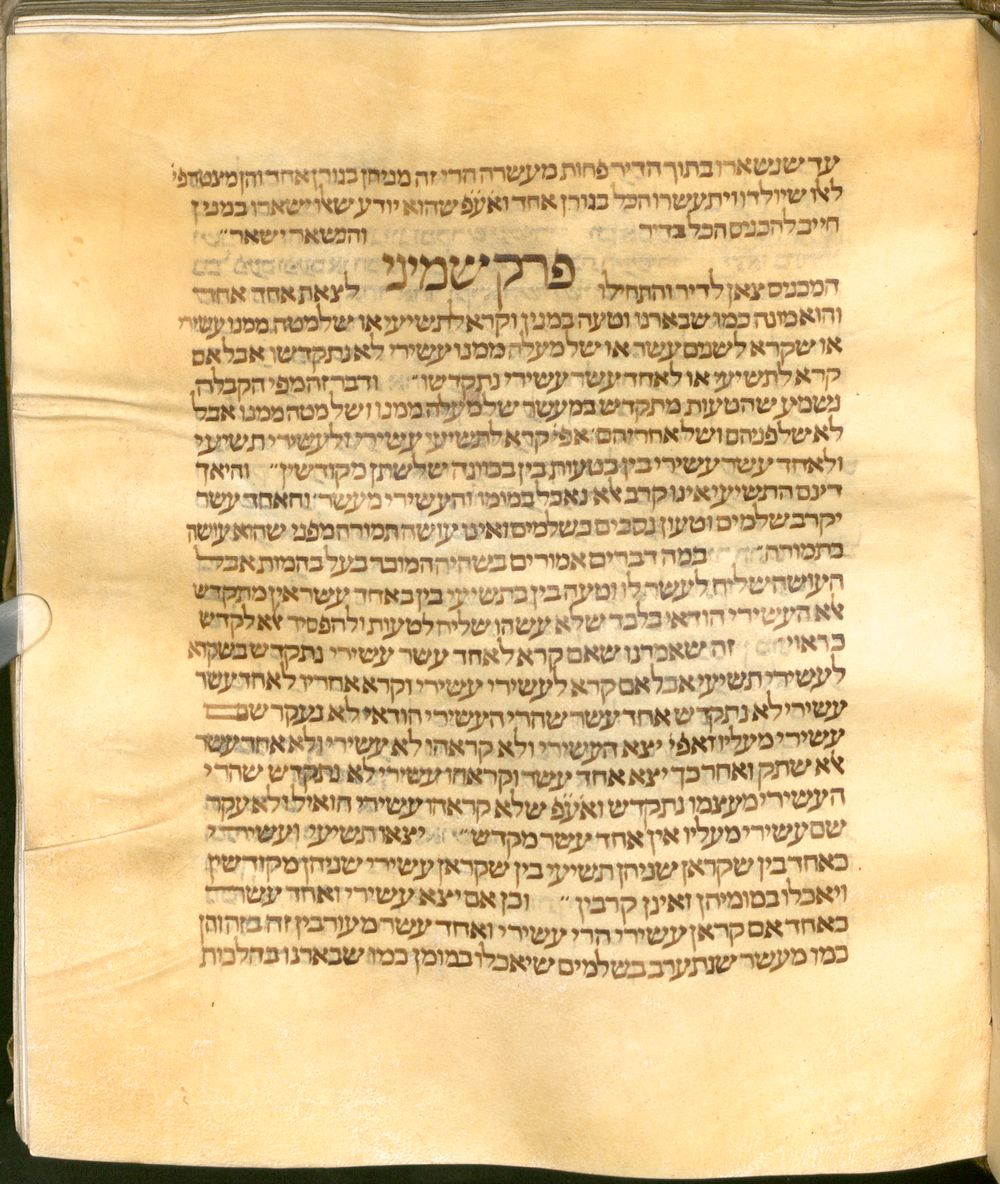 עד שנשארו בתוך הדיר פחות מעשרה הרי זה מניחן בגורן אחר והן מצטרפי׳
לאו שיולדו ויתעשרו הכל בגורן אחד ואע״פ שהוא יודע שאו ישארו במנין
חייב להכניס הכל בדיר והנשאר ישאר״
פרק שמיני
המכניס צאן לדיר והתחילו לצאת אחד אחד
והוא מונה כמו שבארנו וטעה במנין וקרא לתשיעי או שלמטה ממנו עשירי
או שקרא לשנים עשר או שלמעלה ממנו עשירי לא נתקדשו אבל אם
קרא לתשיעי או לאחד עשר עשירי נתקדשו״ ודבר זה מפי הקבלה
נשמע שהטעות מתקדש במעשר שלמעלה ממנו ושלמטה ממנו אבל
לא שלפניהם ושלאחריהם אפי׳ קרא לתשיעי עשירי ולעשירי תשיעי
ולאחד עשר עשירי בין בטעות בין בכוונה שלשתן מקודשין״ והיאך
דינם התשיעי אינו קרב אלא נאכל במומו והעשירי מעשר והאחד עשר
יקרב שלמים וטעון נסכים כשלמים ואינו עושה תמורה מפני שהוא עושה
כתמורה״ במה דברים אמורים בשהיה המונה בעל בהמות אבל
העושה שליח לעשר לו וטעה בין בתשיעי בין באחד עשר אין מתקדש
אלא העשירי הודאי בלבד שלא עשהו שליח לטעות ולהפסיד אלא לקדש
כראוי זה שאמרנו שאם קרא לאחד עשר עשירי נתקדש בשקרא
לעשירי תשיעי אבל אם קרא לעשירי עשירי וקרא אחריו לאחד עשר
עשירי לא נתקדש אחד עשר שהרי העשירי הודאי לא נעקר שם
עשירי מעליו ואפי׳ יצא העשירי ולא קראהו לא עשירי ולא אחד עשר
אלא שתק ואחר כך יצא אחד עשר וקראהו עשירי לא נתקדש שהרי
העשירי מעצמו נתקדש ואע״פ שלא קראהו עשירי הואיל ולא עקר
שם עשירי מעליו אין אחד עשר מקדש״ יצאו תשיעי ועשירי
כאחד בין שקראן שניהן תשיעי בין שקראן עשירי שניהן מקודשין
ויאכלו במומיהן ואינן קרבין״ וכן אם יצא עשירי ואחד עשר
כאחד אם קראן עשירי הרי עשירי ואחד עשר מעורבין זה בזה והן
כמו מעשר שנתערב בשלמים שיאכלו במומן כמו שבארנו בהלכות